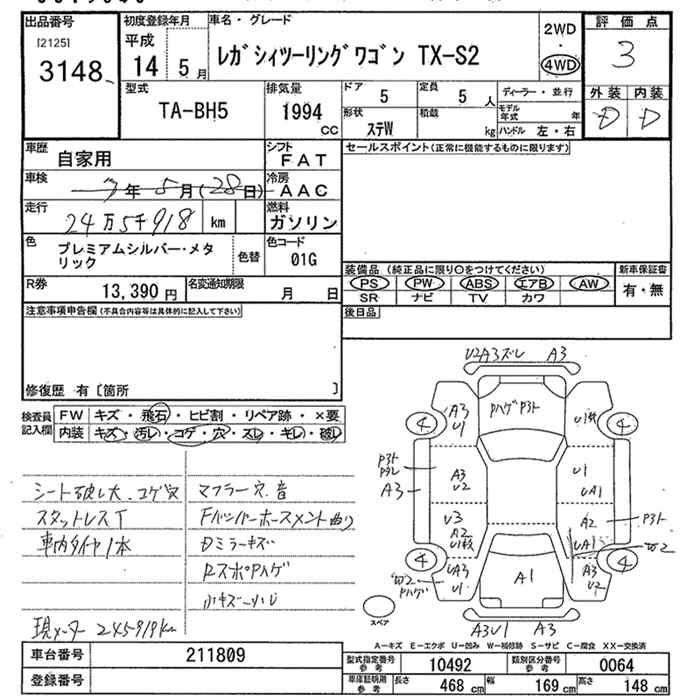 出品番号
[2125]
3148
初度登録年月
平成
14 5月
車名・グレード
レガシィツーリングワゴン TX-S2
2WD
・
4WD
評価点
3
外装 内装
D D
型式
TA-BH5
排気量
1994
cc
ドア
5
定員
5 人
形状
ステW
積載
kg
ディーラー・並行
モデル年式 年
ハンドル 左・右
車歴
自家用
シフト
FAT
車検
年 5月(28日)
冷房
AAC
走行
24万5千918 km
燃料
ガソリン
色
プレミアムシルバー・メタリック
色替
色コード
01G
R券
13,390 円
名変通知期限
月 日
セールスポイント(正常に機能するものに限ります)
装備品(純正品に限り○をつけてください)
PS PW ABS エアB AW
SR ナビ TV カワ
新車保証書
有・無
後日品
注意事項申告欄(不具合内容等は具体的に記入して下さい)
修復歴 有〔箇所 〕
検査員記入欄
FW キズ・飛石・ヒビ割・リペア跡・×要
内装 キズ・汚レ・コゲ・穴・スレ・キレ・破レ
シート破レ大.コゲ穴
マフラー穴.音
スタットレスT
Fバンパーホースメント曲り
車内タイヤ1本
Dミラーキズ
RスポPハゲ
小キズ
現メーター 245919km
U2A3ズレ A3
A3
U1
PハゲP3ト
4
4
P3ト
A3
A3
U2
U1
UA1
U3
A2
A2
P3ト
UA1
4
4
UA3
U1
Pハゲ
A1
A3
U2
スペア
A3U1 A3
A=キズ E=エクボ U=凹み W=補修跡 S=サビ C=腐食 XX=交換済
車台番号
211809
登録番号
型式指定番号
参考
10492
類別区分番号
参考
0064
車庫証明用
参考
長さ
468 cm
幅
169 cm
高さ
148 cm